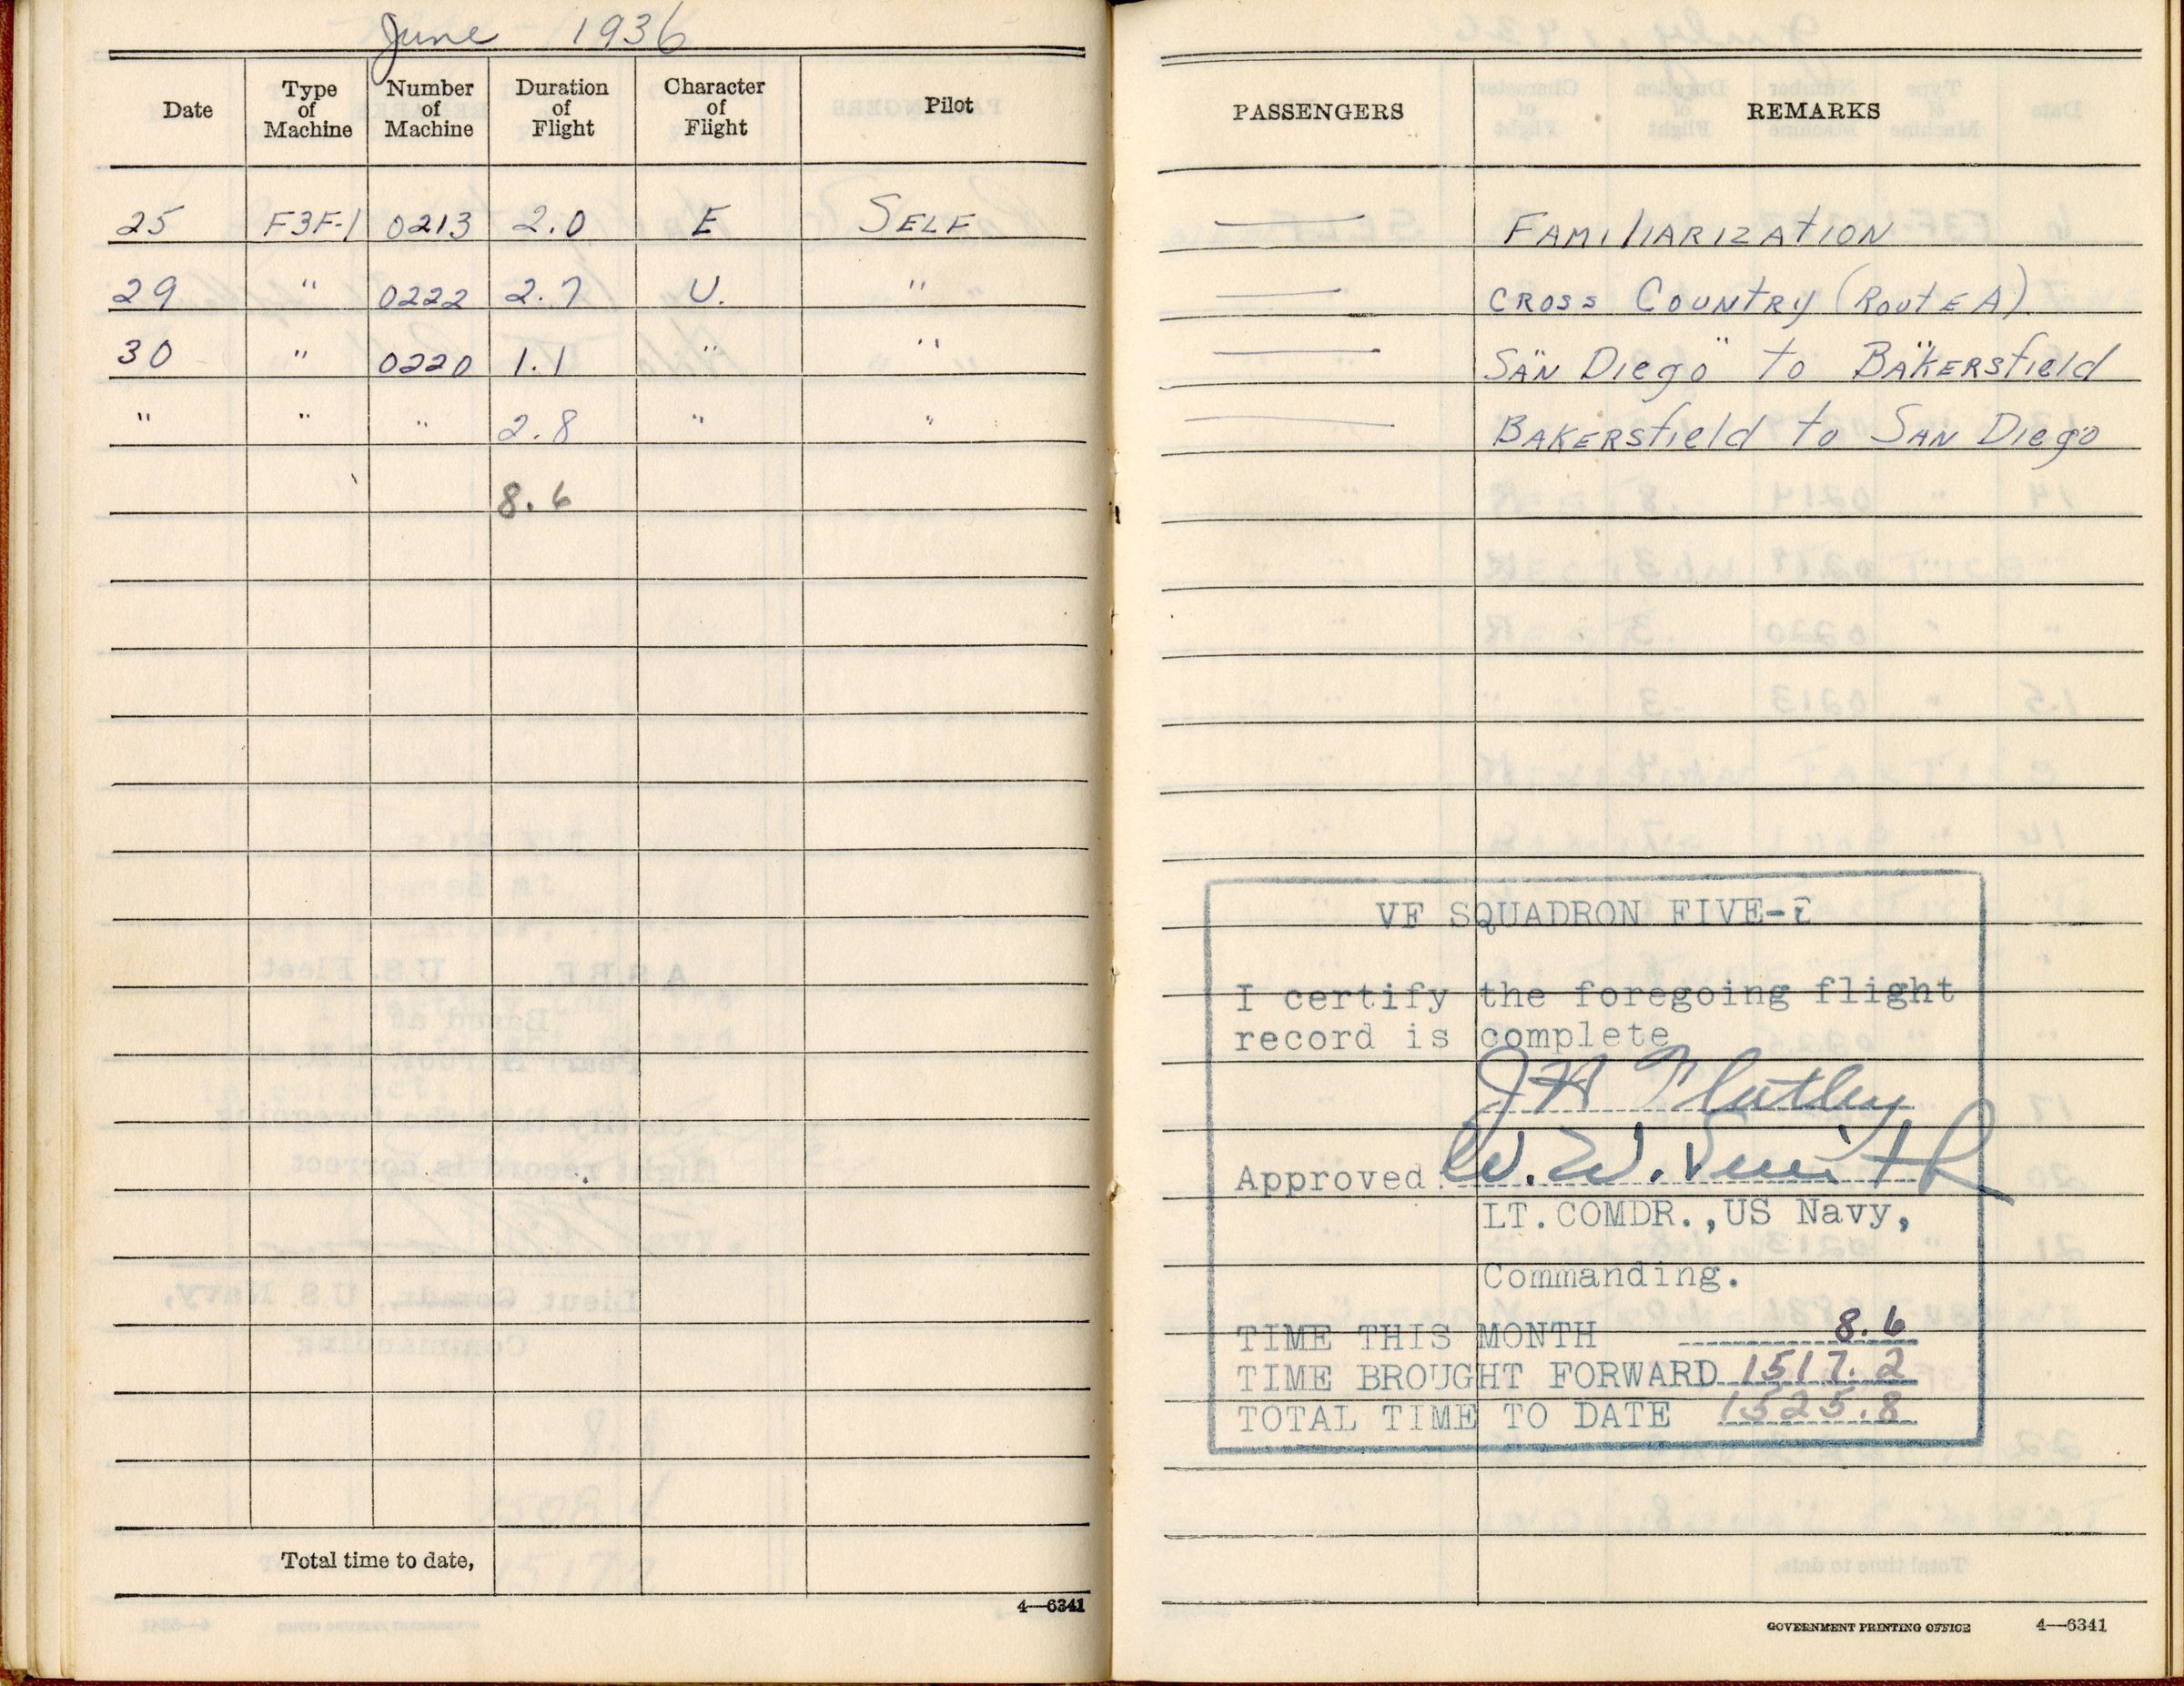 June 1936
Date Type of Machine Number of Machine Duration of Flight Character of Flight Pilot PASSENGERS REMARKS
25 F3F-1 0213 2.0 E SELF — FAMILIARIZATION
29 " 0222 2.7 U. " — CROSS COUNTRY (ROUTE A)
30 " 0220 1.1 " " — SAN Diego to BAKERSfield
" " " 2.8 " " — BAKERSfield to SAN Diego
8.6
VF SQUADRON FIVE-
I certify the foregoing flight
record is complete
J H
Approved: W. W. Smith
LT.COMDR.,US Navy,
Commanding.
TIME THIS MONTH 8.6
TIME BROUGHT FORWARD 1517.2
TOTAL TIME TO DATE 1525.8
Total time to date,
4—6341
GOVERNMENT PRINTING OFFICE 4—6341